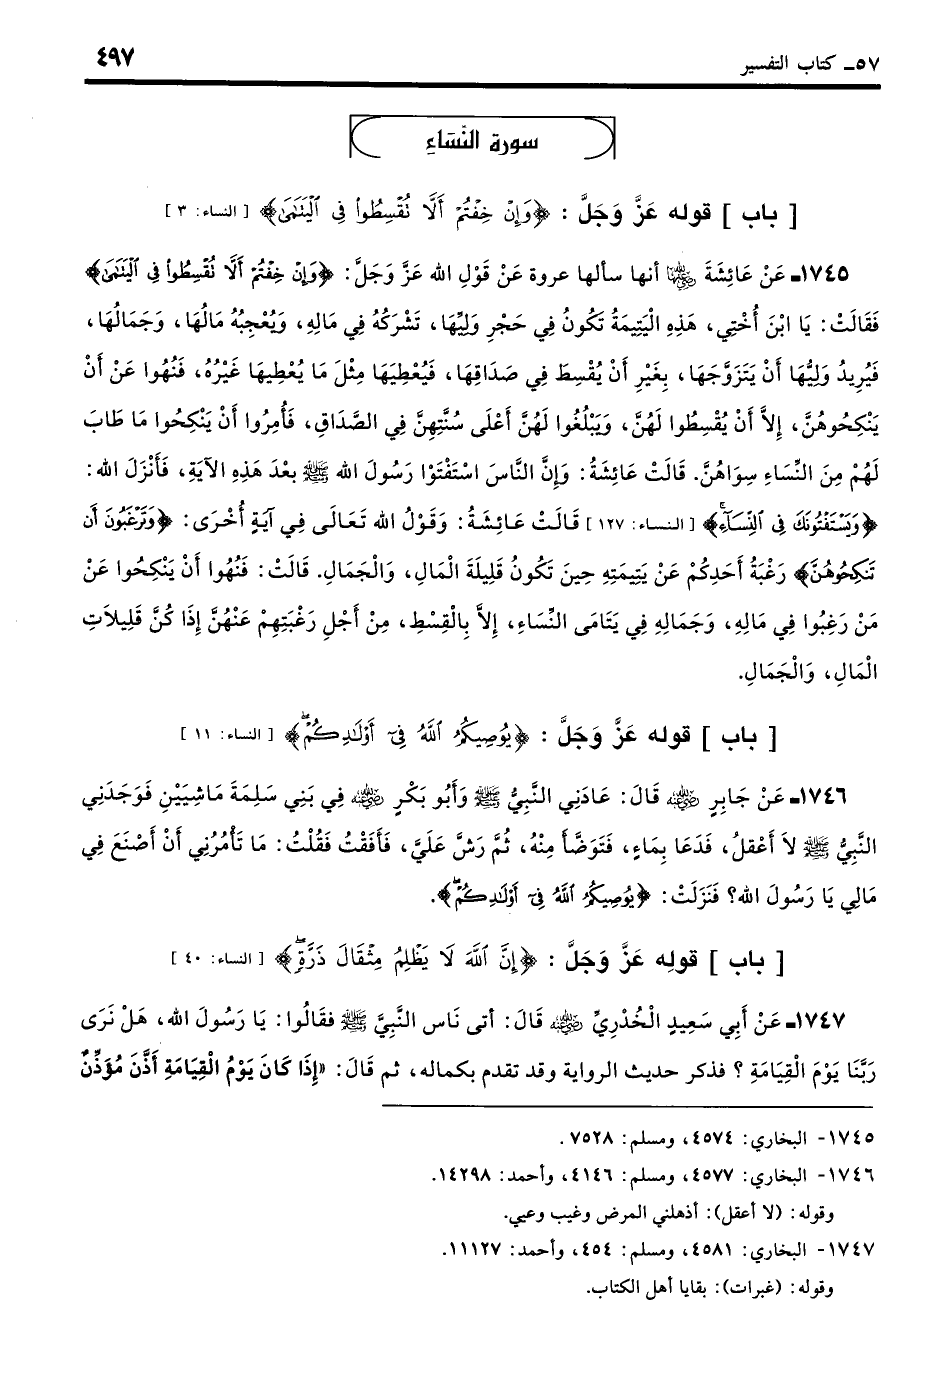 ٥٧ـ كتاب التفسير
٤٩٧
سورة النِّسَاءِ
[ باب ] قوله عَزَّ وَجَلَّ : ﴿وَإِنْ خِفْتُمْ أَلَّا تُقْسِطُوا۟ فِى ٱلْيَتَٰمَىٰ﴾ [ النساء: ٣ ]
١٧٤٥ـ عَنْ عَائِشَةَ رضي الله عنها أنها سألها عروة عَنْ قَوْلِ الله عَزَّ وَجَلَّ: ﴿وَإِنْ خِفْتُمْ أَلَّا تُقْسِطُوا۟ فِى ٱلْيَتَٰمَىٰ﴾
فَقَالَتْ: يَا ابْنَ أُخْتِي، هَذِهِ الْيَتِيمَةُ تَكُونُ فِي حَجْرِ وَلِيِّهَا، تَشْرَكُهُ فِي مَالِهِ، وَيُعْجِبُهُ مَالُهَا، وَجَمَالُهَا،
فَيُرِيدُ وَلِيُّهَا أَنْ يَتَزَوَّجَهَا، بِغَيْرِ أَنْ يُقْسِطَ فِي صَدَاقِهَا، فَيُعْطِيَهَا مِثْلَ مَا يُعْطِيهَا غَيْرُهُ، فَنُهُوا عَنْ أَنْ
يَنْكِحُوهُنَّ، إِلاَّ أَنْ يُقْسِطُوا لَهُنَّ، وَيَبْلُغُوا لَهُنَّ أَعْلَى سُنَّتِهِنَّ فِي الصَّدَاقِ، فَأُمِرُوا أَنْ يَنْكِحُوا مَا طَابَ
لَهُمْ مِنَ النِّسَاءِ سِوَاهُنَّ. قَالَتْ عَائِشَةُ: وَإِنَّ النَّاسَ اسْتَفْتَوْا رَسُولَ الله ﷺ بَعْدَ هَذِهِ الآيَةِ، فَأَنْزَلَ الله:
﴿وَيَسْتَفْتُونَكَ فِى ٱلنِّسَآءِ﴾ [ النساء: ١٢٧ ] قَالَتْ عَائِشَةُ: وَقَوْلُ الله تَعَالَى فِي آيَةٍ أُخْرَى: ﴿وَتَرْغَبُونَ أَن
تَنكِحُوهُنَّ﴾ رَغْبَةُ أَحَدِكُمْ عَنْ يَتِيمَتِهِ حِينَ تَكُونُ قَلِيلَةَ الْمَالِ، وَالْجَمَالِ. قَالَتْ: فَنُهُوا أَنْ يَنْكِحُوا عَنْ
مَنْ رَغِبُوا فِي مَالِهِ، وَجَمَالِهِ فِي يَتَامَى النِّسَاءِ، إِلاَّ بِالْقِسْطِ، مِنْ أَجْلِ رَغْبَتِهِمْ عَنْهُنَّ إِذَا كُنَّ قَلِيلاَتِ
الْمَالِ، وَالْجَمَالِ.
[ باب ] قوله عَزَّ وَجَلَّ : ﴿يُوصِيكُمُ ٱللَّهُ فِىٓ أَوْلَٰدِكُمْ ۖ﴾ [ النساء: ١١ ]
١٧٤٦ـ عَنْ جَابِرٍ رضي الله عنه قَالَ: عَادَنِي النَّبِيُّ ﷺ وَأَبُو بَكْرٍ رضي الله عنه فِي بَنِي سَلِمَةَ مَاشِيَيْنِ فَوَجَدَنِي
النَّبِيُّ ﷺ لاَ أَعْقلُ، فَدَعَا بِمَاءٍ، فَتَوَضَّأَ مِنْهُ، ثُمَّ رَشَّ عَلَيَّ، فَأَفَقْتُ فَقُلْتُ: مَا تَأْمُرُنِي أَنْ أَصْنَعَ فِي
مَالِي يَا رَسُولَ الله؟ فَنَزَلَتْ: ﴿يُوصِيكُمُ ٱللَّهُ فِىٓ أَوْلَٰدِكُمْ ۖ﴾.
[ باب ] قولِه عَزَّ وَجَلَّ : ﴿إِنَّ ٱللَّهَ لَا يَظْلِمُ مِثْقَالَ ذَرَّةٍ ۖ﴾ [ النساء: ٤٠ ]
١٧٤٧ـ عَنْ أَبِي سَعِيدٍ الْخُدْرِيِّ رضي الله عنه قَالَ: أتى نَاس النَّبِيَّ ﷺ فقَالُوا: يَا رَسُولَ الله، هَلْ نَرَى
رَبَّنَا يَوْمَ الْقِيَامَةِ ؟ فذكر حديث الرواية وقد تقدم بكماله، ثم قَالَ: «إِذَا كَانَ يَوْمُ الْقِيَامَةِ أَذَّنَ مُؤَذِّنٌ
١٧٤٥- البخاري: ٤٥٧٤، ومسلم: ٧٥٢٨ .
١٧٤٦- البخاري: ٤٥٧٧، ومسلم: ٤١٤٦، وأحمد: ١٤٢٩٨.
وقوله: (لا أعقل): أذهلني المرض وغيب وعيي.
١٧٤٧- البخاري: ٤٥٨١، ومسلم: ٤٥٤، وأحمد: ١١١٢٧.
وقوله: (غبرات): بقايا أهل الكتاب.